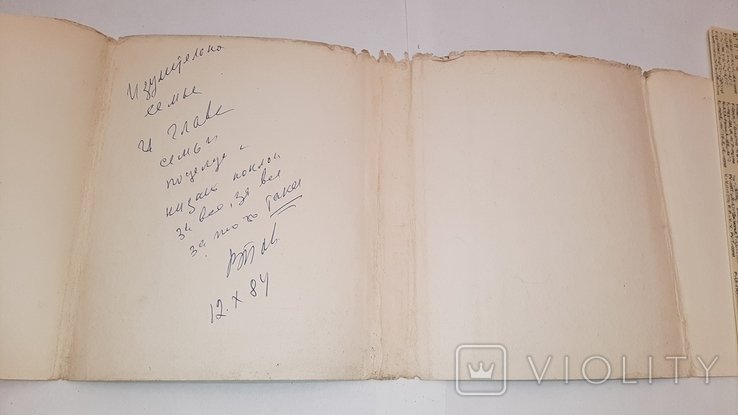 Изумительно
семье
И главе
семьи
поцелуи и
низкий поклон
за все, за все
за то что такие
12. X 84
VIOLITY